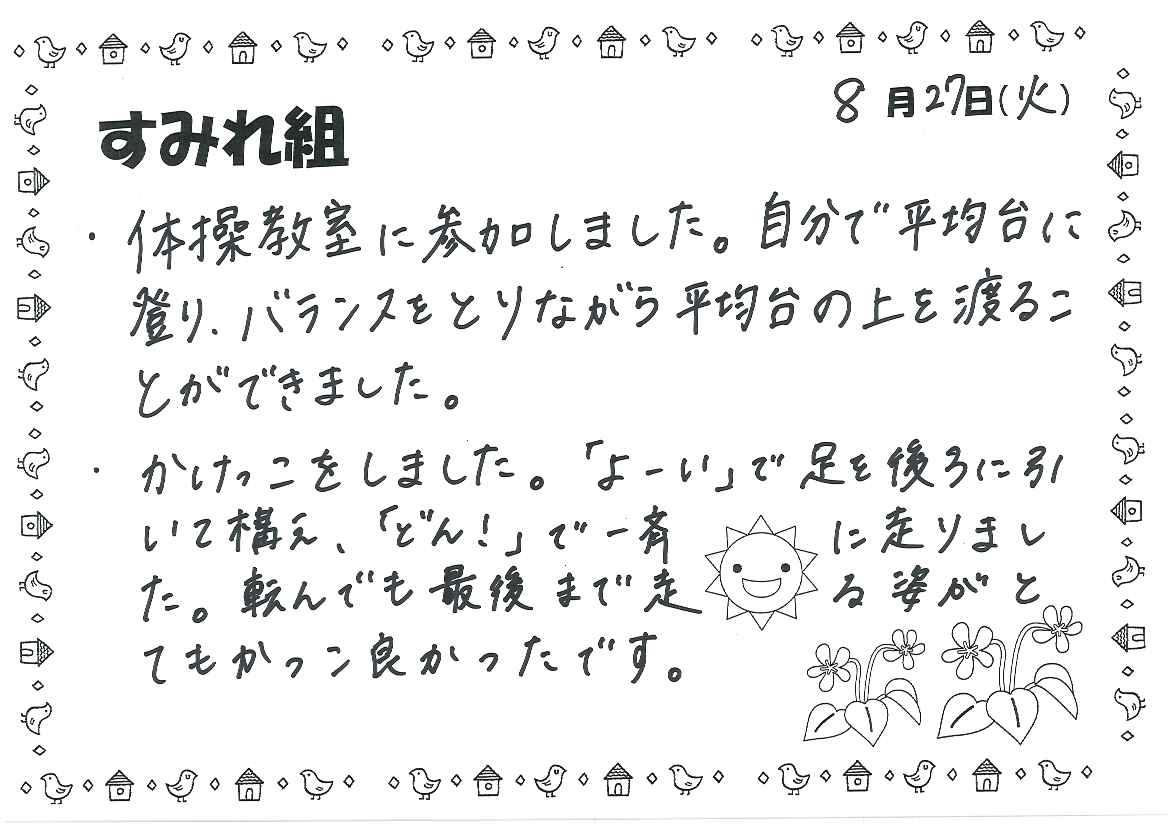 8月27日(火)
すみれ組
・体操教室に参加しました。自分で平均台に
登り、バランスをとりながら平均台の上を渡るこ
とができました。
・かけっこをしました。「よーい」で足を後ろに引
いて構え、「どん!」で一斉に走りまし
た。転んでも最後まで走る姿がと
てもかっこ良かったです。